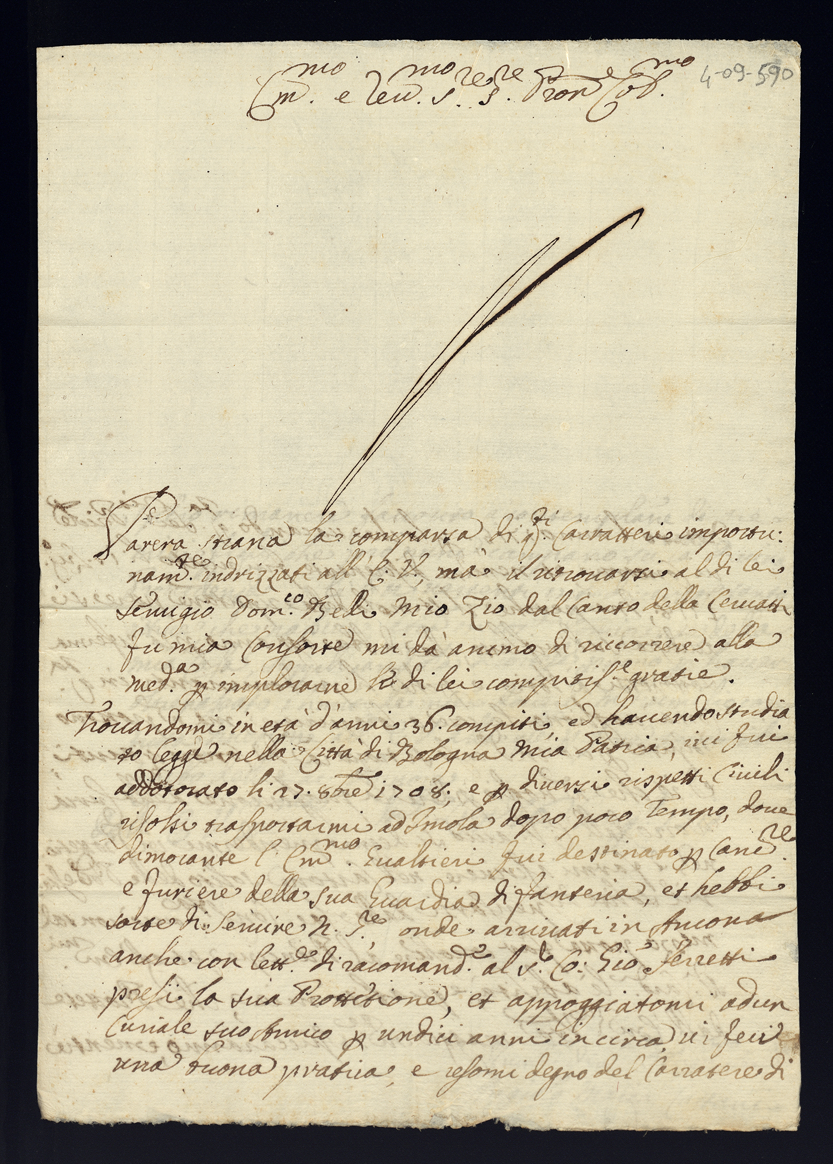 4-09-590
Em.mo e Reu.mo S.re S.re Pron.e Col.mo
Parerà strana la comparsa di q.ti Carratteri importu:
nam.te indrizzati all' E. V., mà il ritrouarsi al di lei
Seruigio Dom.co Belli Mio Zio dal Canto della
fù mia Consorte mi dà animo di riccorrere alla
med.a p implorarne le di lei compitiss.e gratie.
Trouandomi in età d'anni 36. compiti, ed hauendo studia
to legge nella Città di Bologna Mia Patria, iui fui
addotorato li 27. 8bre 1708, e p diuersi rispetti Ciuili
risolsi trasportarmi ad Imola dopo poco Tempo, doue
dimorante l' Em.mo Gualtieri fui destinato p Canc.re
e furiere della sua Guardia di fanteria, et hebbi
sorte di Seruire N. S.re onde arriuati in Ancona
anche con lett.e di racomand.e al S. Co: Gio: Ferretti
presi la sua Prottetione, et appoggiatomi ad un
Curiale suo Amico p undici anni in circa, ui feci
una buona pratica, e resomi degno del Carratere di